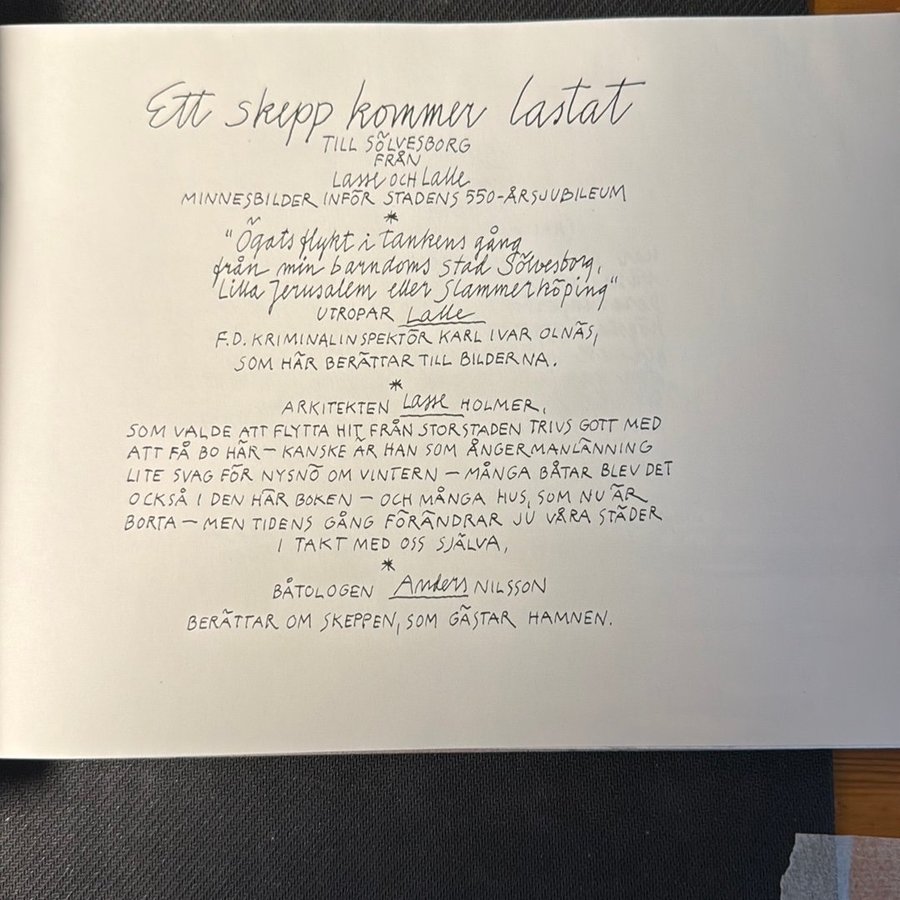 Ett skepp kommer lastat
TILL SÖLVESBORG
FRÅN
Lasse OCH Lalle
MINNESBILDER INFÖR STADENS 550-ÅRSJUBILEUM
*
"Ögats flykt i tankens gång
från min barndoms stad Sölvesborg,
Lilla Jerusalem eller Slammerköping"
UTROPAR Lalle
F.D. KRIMINALINSPEKTÖR KARL IVAR OLNÄS,
SOM HÄR BERÄTTAR TILL BILDERNA.
*
ARKITEKTEN Lasse HOLMER,
SOM VALDE ATT FLYTTA HIT FRÅN STORSTADEN TRIVS GOTT MED
ATT FÅ BO HÄR – KANSKE ÄR HAN SOM ÅNGERMANLÄNNING
LITE SVAG FÖR NYSNÖ OM VINTERN – MÅNGA BÅTAR BLEV DET
OCKSÅ I DEN HÄR BOKEN – OCH MÅNGA HUS, SOM NU ÄR
BORTA – MEN TIDENS GÅNG FÖRÄNDRAR JU VÅRA STÄDER
I TAKT MED OSS SJÄLVA,
*
BÅTOLOGEN Anders NILSSON
BERÄTTAR OM SKEPPEN, SOM GÄSTAR HAMNEN.